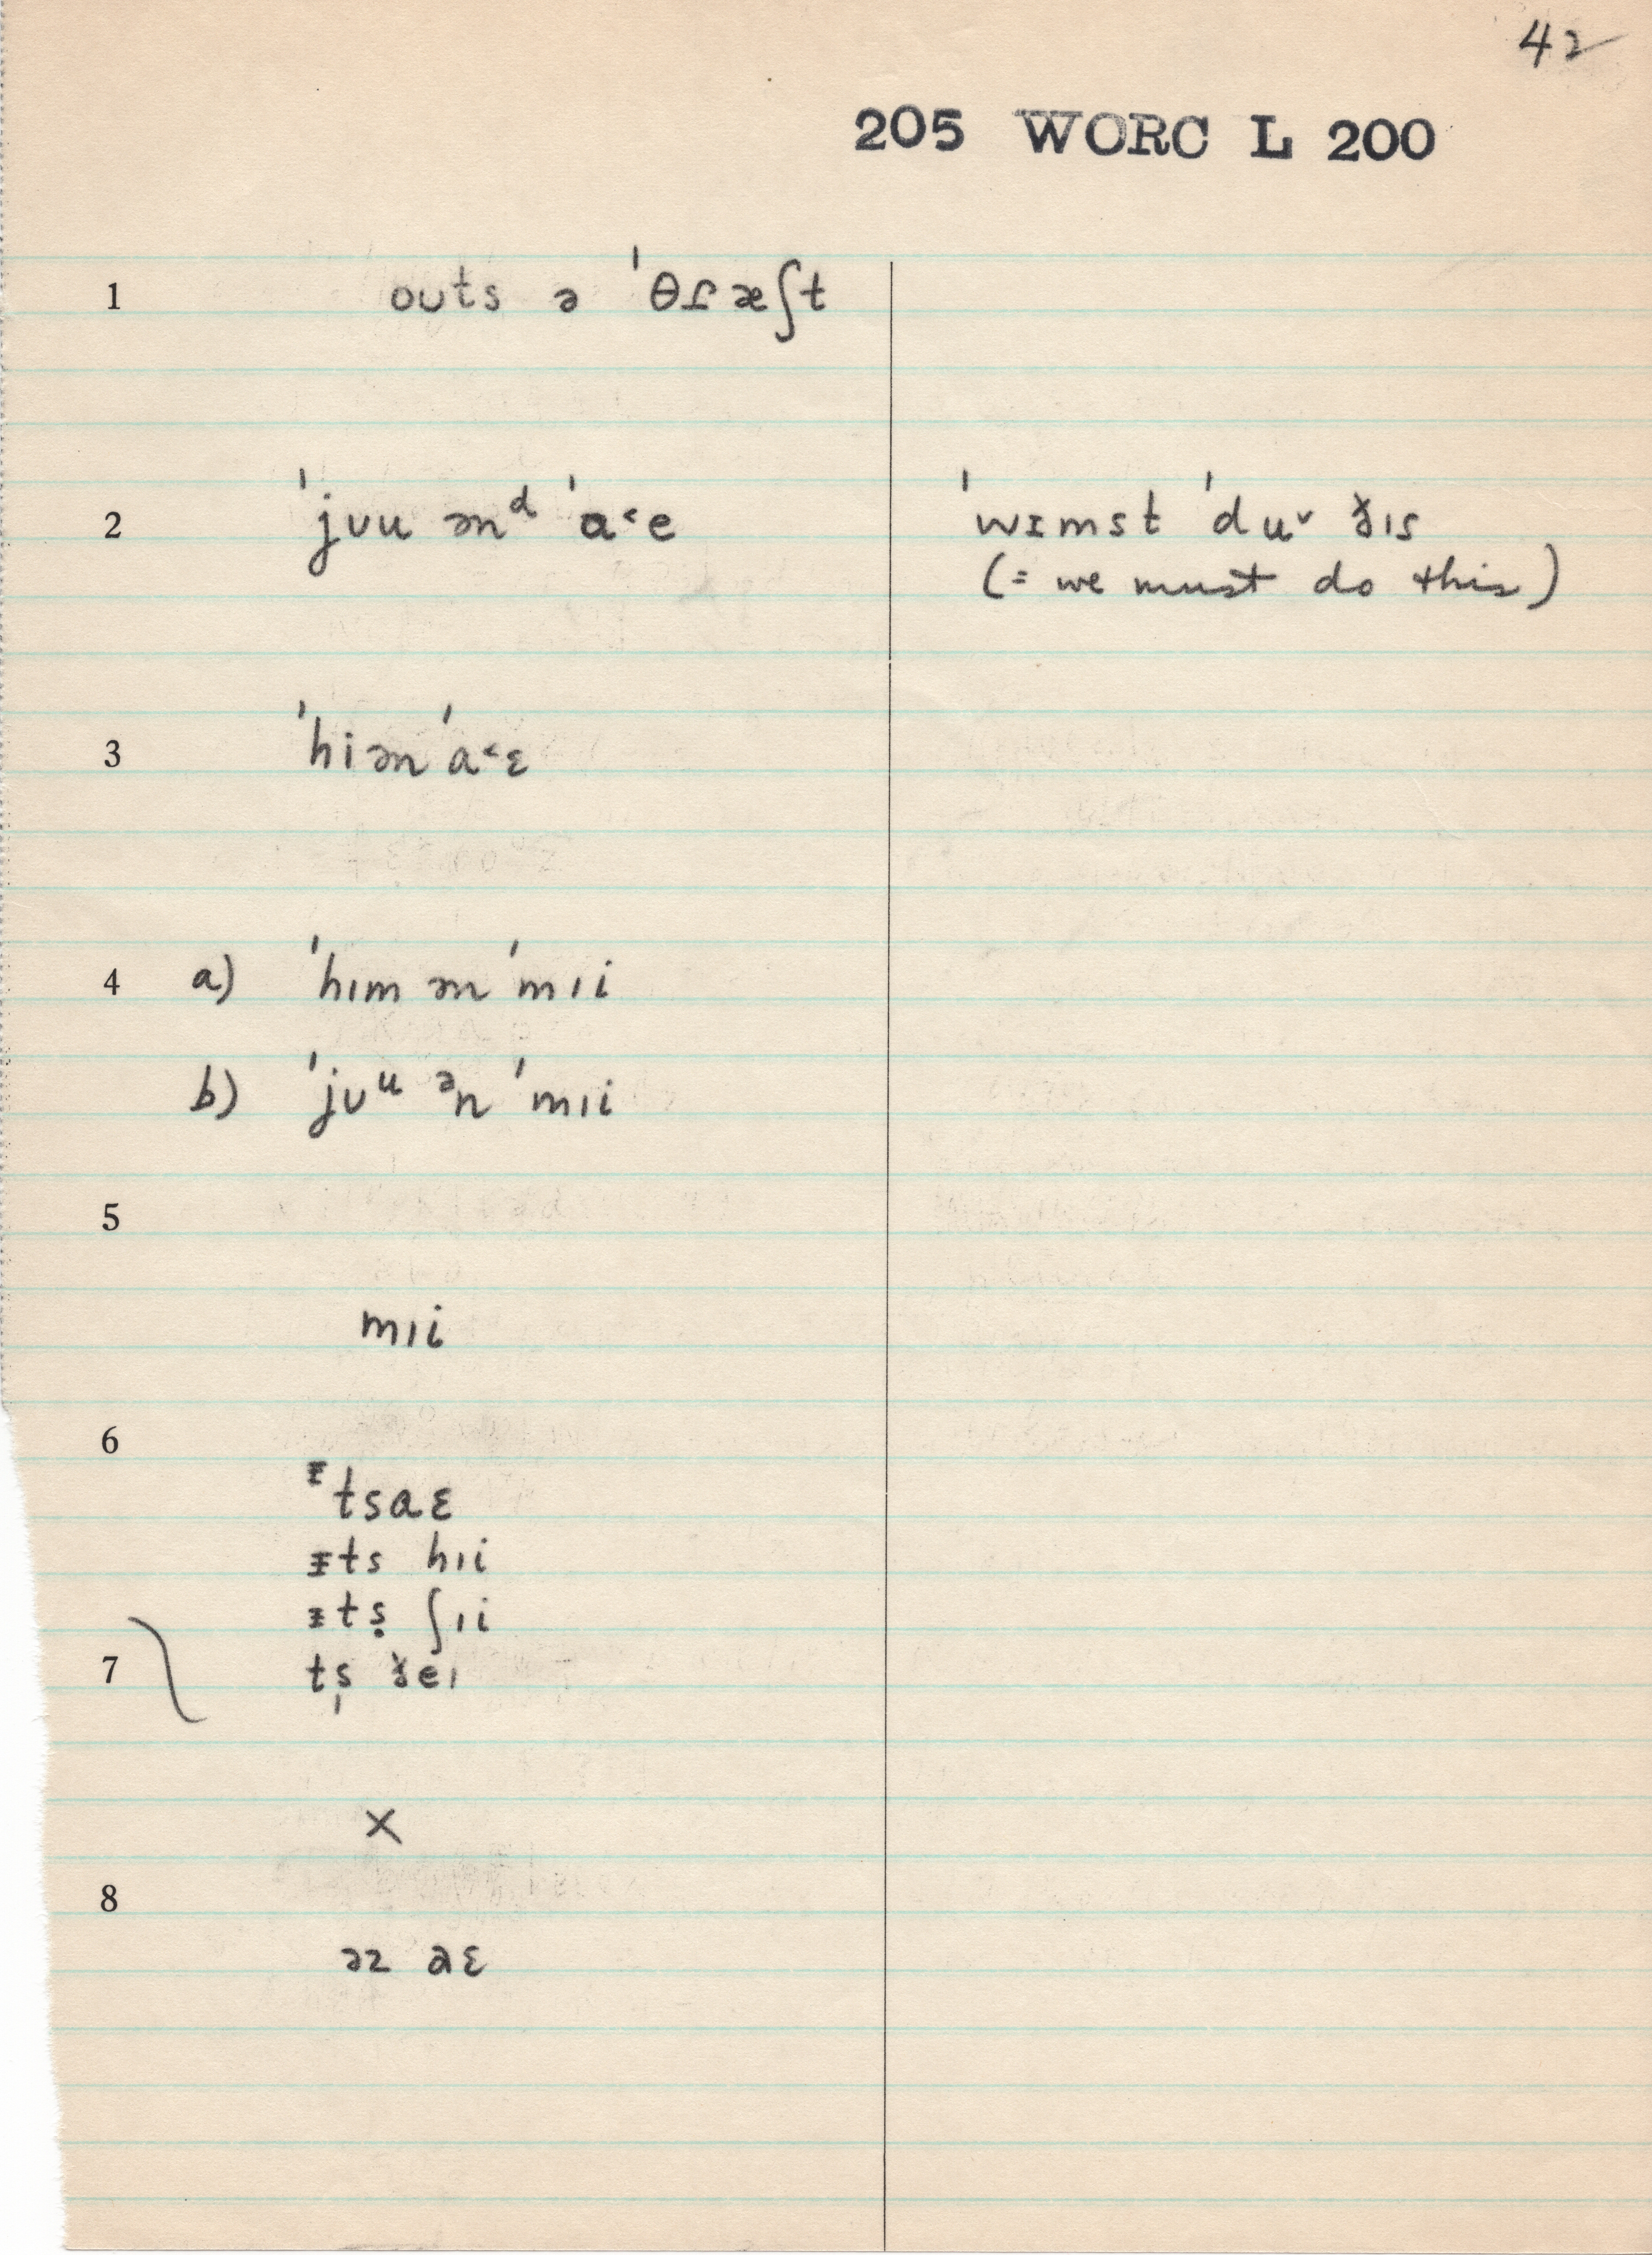 42
205 WORC L 200
1 oʊts ə ˈθɾæʃt
2 ˈjʊu ənᵈ ˈa˂e ˈwɪmst ˈduˇ ɤ̵ɪs
(= we must do this)
3 ˈhiən ˈa˂ɛ
4 a) ˈhɪm ən ˈmɪi
b) ˈjʊᵘ ᵊn ˈmɪi
5
mɪi
6
ᵻtsaɛ
ᵻts hɪi
ᵻtṣ ʃɪi
7 ts̩ ðeɪ
X
8
əz aɛ